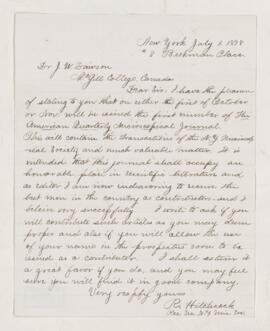 New York July 5 1878
# 8 Beekman Place
Dr J. W. Dawson
McGill College, Canada
Dear Sir: I have the pleasure
of stating to you that on either the first of October
or Nov. will be issued the first number of The
American Quarterly Microscopical Journal.
This will contain the transactions of the N.Y. Microscop-
ical Society and much valuable matter. It is
intended that this journal shall occupy an
honorable place in scientific literature and
as editor I am now endeavoring to secure the
best men in the country as contributors, and I
believe very successfully. I write to ask if you
will contribute such articles as you may deem
proper and also if you will allow the use
of your name in the prospectus soon to be
issued as a contributor. I shall esteem it
a great favor if you do, and you may feel
sure you will find it in good company.
Very resp'fly yours
R. Hitchcock